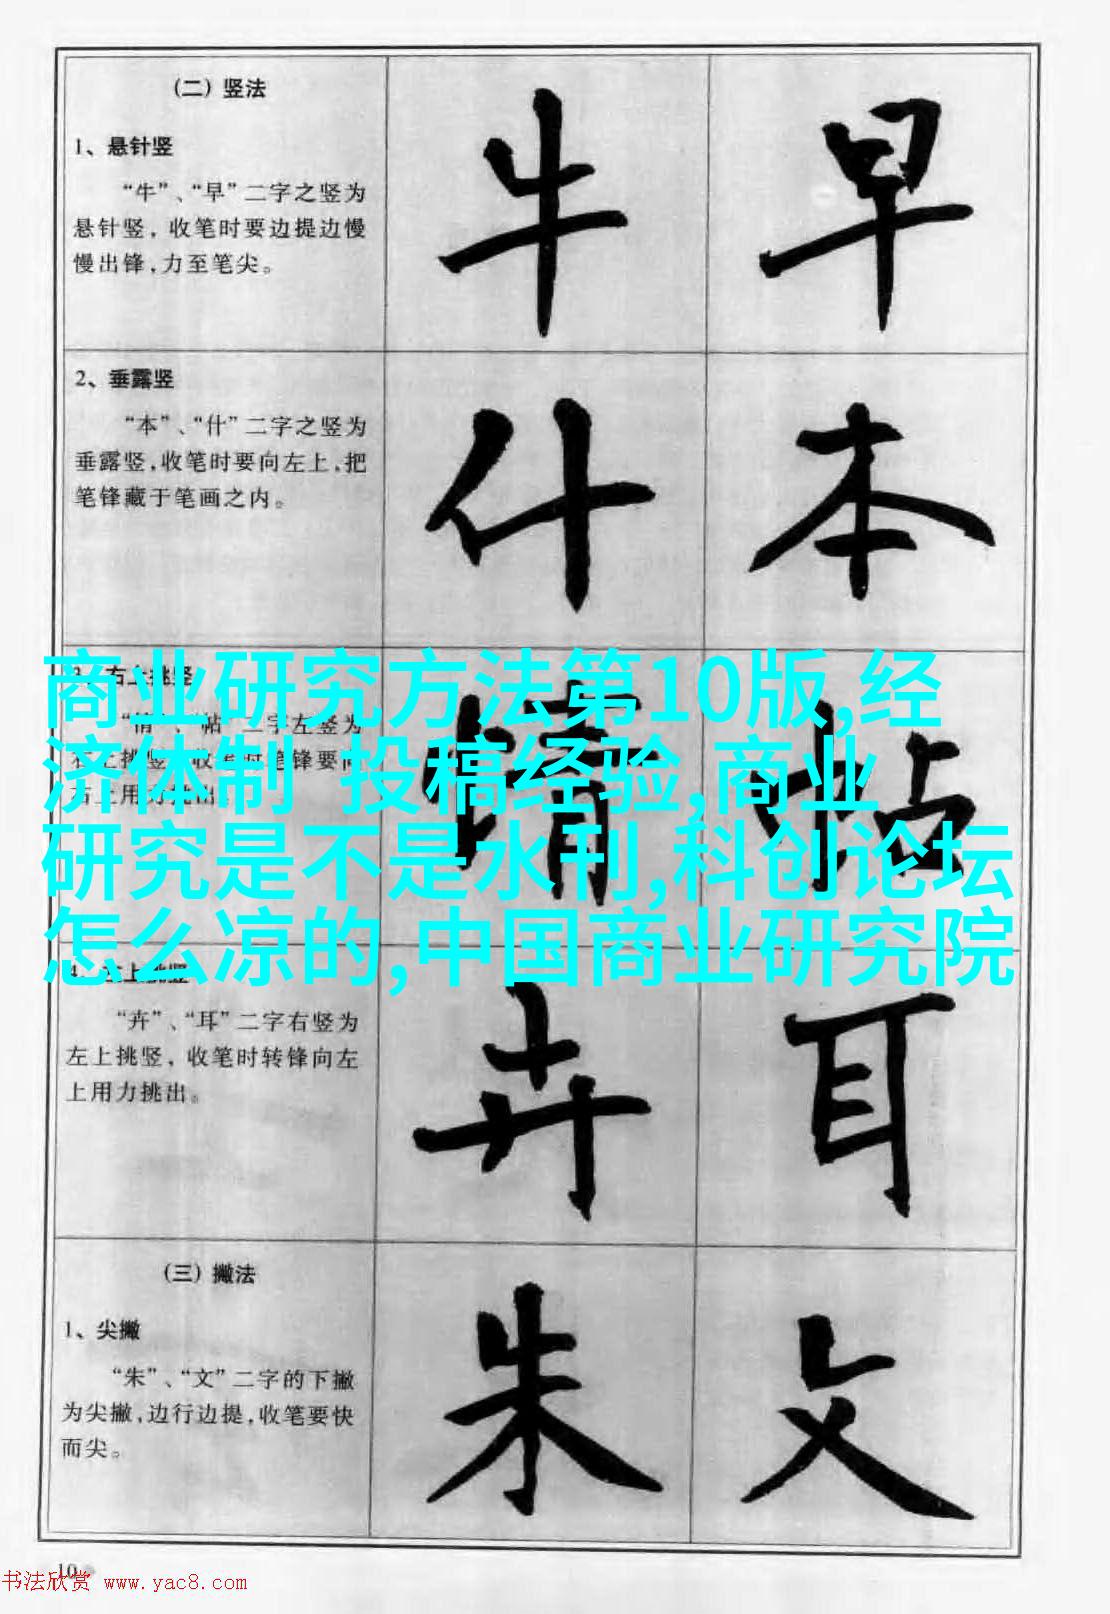 (二) 竖法
1、悬针竖
“牛”、“早”二字之竖为
悬针竖，收笔时要边提边慢
慢出锋,力至笔尖。
牛 早
2、垂露竖
“本”、“什”二字之竖为
垂露竖,收笔时要向左上,把
笔锋藏于笔画之内。
什 本
商业研究方法第10版,经
济体制 投稿经验,商业
研究是不是水刊,科创论坛
怎么凉的,中国商业研究院
帖
“卉”、“耳”二字右竖为
左上挑竖，收笔时转锋向左
上用力挑出。
卉 耳
(三) 撇法
1、尖撇
“朱”、“文”二字的下撇
为尖撇,边行边提,收笔要快
而尖。
朱 文
10
书法欣赏 www.yac8.com